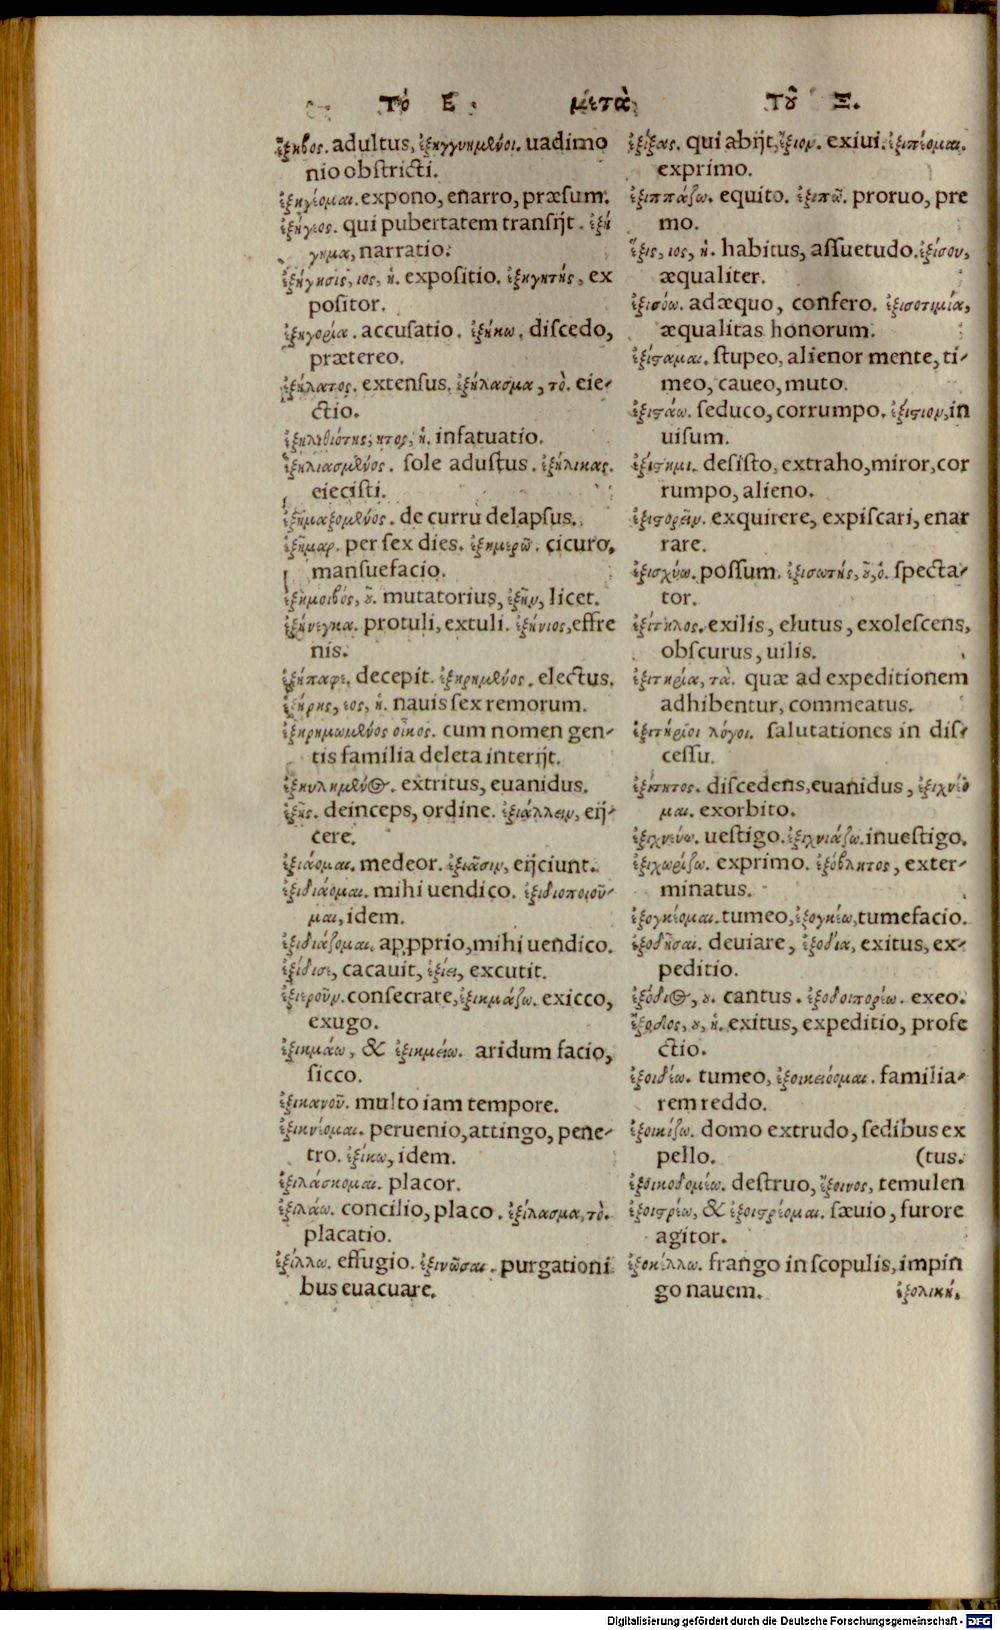 Τὸ Ε. μετὰ τοῦ Ξ.
ἔξηβος. adultus, ἐξηγγυημένοι. uadimo
nio obstricti.
ἐξηγέομαι. expono, enarro, præsum.
ἐξήγιος. qui pubertatem transijt. ἐξή
γημα, narratio.
ἐξήγησις, ιος, ἡ. expositio. ἐξηγητής, ex
positor.
ἐξηγορία. accusatio. ἐξήκω. discedo,
prætereo.
ἐξήλατος. extensus. ἐξήλασμα, τὸ. eie-
ctio.
ἐξηλιθιότης, ητος, ἡ. infatuatio.
ἐξηλιασμένος. sole adustus. ἐξήλικας.
eiecisti.
ἐξημαξομένος. de curru delapsus.
ἐξῆμαρ. per sex dies. ἐξημερῶ. cicuro,
mansuefacio.
ἐξημοιβός, οῦ. mutatorius, ἐξῆν, licet.
ἐξήνεγκα. protuli, extuli. ἐξήνιος, effre
nis.
ἐξήπαφε. decepit. ἐξῃρημένος. electus.
ἑξήρης, εος, ἡ. nauis sex remorum.
ἐξηρημωμένος οἶκος. cum nomen gen-
tis familia deleta interijt.
ἐξηυλημένος. extritus, euanidus.
ἑξῆς. deinceps, ordine. ἐξιάλλειν, eij-
cere.
ἐξιάομαι. medeor. ἐξιᾶσιν, eijciunt.
ἐξιδιάομαι. mihi uendico. ἐξιδιοποιοῦ-
μαι, idem.
ἐξιδιάζομαι. approprio, mihi uendico.
ἐξίδισε, cacauit, ἐξίει, excutit.
ἐξιεροῦν. consecrare, ἐξικμάζω. exicco,
exugo.
ἐξικμάω, & ἐξικμέω. aridum facio,
sicco.
ἐξικανοῦ. multo iam tempore.
ἐξικνέομαι. peruenio, attingo, pene-
tro. ἐξίκω, idem.
ἐξιλάσκομαι. placor.
ἐξιλάω. concilio, placo. ἐξίλασμα, τὸ.
placatio.
ἐξίλλω. effugio. ἐξινῶσαι. purgationi
bus euacuare.
ἐξίξας. qui abijt, ἔξιον. exiui. ἐξιπέομαι.
exprimo.
ἐξιππάζω. equito. ἐξιπῶ. proruo, pre
mo.
ἕξις, ιος, ἡ. habitus, assuetudo. ἐξίσου,
æqualiter.
ἐξισόω. adæquo, confero. ἐξισοτιμία,
æqualitas honorum.
ἐξίσταμαι. stupeo, alienor mente, ti-
meo, caueo, muto.
ἐξιστάω. seduco, corrumpo. ἐξίστιον, in
uisum.
ἐξίστημι. desisto, extraho, miror, cor
rumpo, alieno.
ἐξιστορεῖν. exquirere, expiscari, enar
rare.
ἐξισχύω. possum. ἐξισωτής, οῦ, ὁ. specta-
tor.
ἐξίτηλος. exilis, elutus, exolescens,
obscurus, uilis.
ἐξιτηρία, τὰ. quæ ad expeditionem
adhibentur, commeatus.
ἐξιτήριοι λόγοι. salutationes in dis-
cessu.
ἐξίτητος. discedens, euanidus, ἐξιχνέο
μαι. exorbito.
ἐξιχνεύω. uestigo. ἐξιχνιάζω. inuestigo.
ἐξιχωρίζω. exprimo. ἐξόβλητος, exter-
minatus.
ἐξογκέομαι. tumeo, ἐξογκέω, tumefacio.
ἐξοδῆσαι. deuiare, ἐξοδία, exitus, ex-
peditio.
ἐξόδιος, ου. cantus. ἐξοδοιπορέω. exeo.
ἔξοδος, ου, ἡ. exitus, expeditio, profe
ctio.
ἐξοιδέω. tumeo, ἐξοικειόομαι. familia-
rem reddo.
ἐξοικίζω. domo extrudo, sedibus ex
pello. (tus.
ἐξοικοδομέω. destruo, ἔξοινος, temulen
ἐξοιστρέω, & ἐξοιστρέομαι. sæuio, furore
agitor.
ἐξοκέλλω. frango in scopulis, impin
go nauem. ἐξολικὴ.
Digitalisierung gefördert durch die Deutsche Forschungsgemeinschaft - DFG